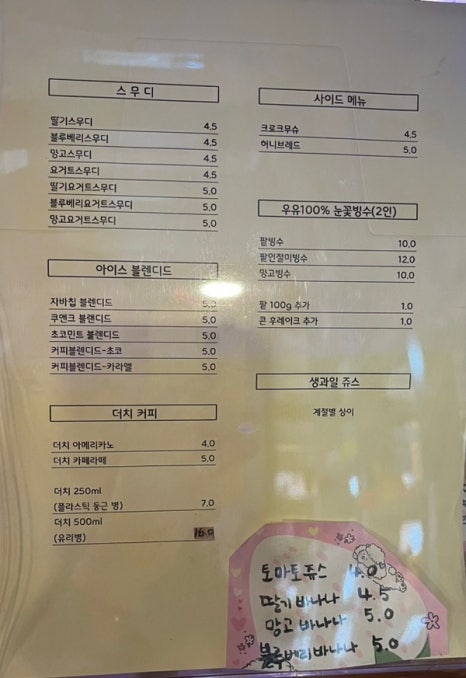 스무디
딸기스무디 4.5
블루베리스무디 4.5
망고스무디 4.5
요거트스무디 4.5
딸기요거트스무디 5.0
블루베리요거트스무디 5.0
망고요거트스무디 5.0
아이스 블렌디드
자바칩 블렌디드 5.0
쿠앤크 블렌디드 5.0
초코민트 블렌디드 5.0
커피블렌디드-초코 5.0
커피블렌디드-카라멜 5.0
더치 커피
더치 아메리카노 4.0
더치 카페라떼 5.0
더치 250ml
(플라스틱 둥근 병) 7.0
더치 500ml
(유리병) 16.0
사이드 메뉴
크로크무슈 4.5
허니브레드 5.0
우유100% 눈꽃빙수(2인)
팥빙수 10.0
팥인절미빙수 12.0
망고빙수 10.0
팥 100g 추가 1.0
콘 후레이크 추가 1.0
생과일 쥬스
계절별 상이
토마토쥬스 4.0
딸기바나나 4.5
망고바나나 5.0
블루베리바나나 5.0